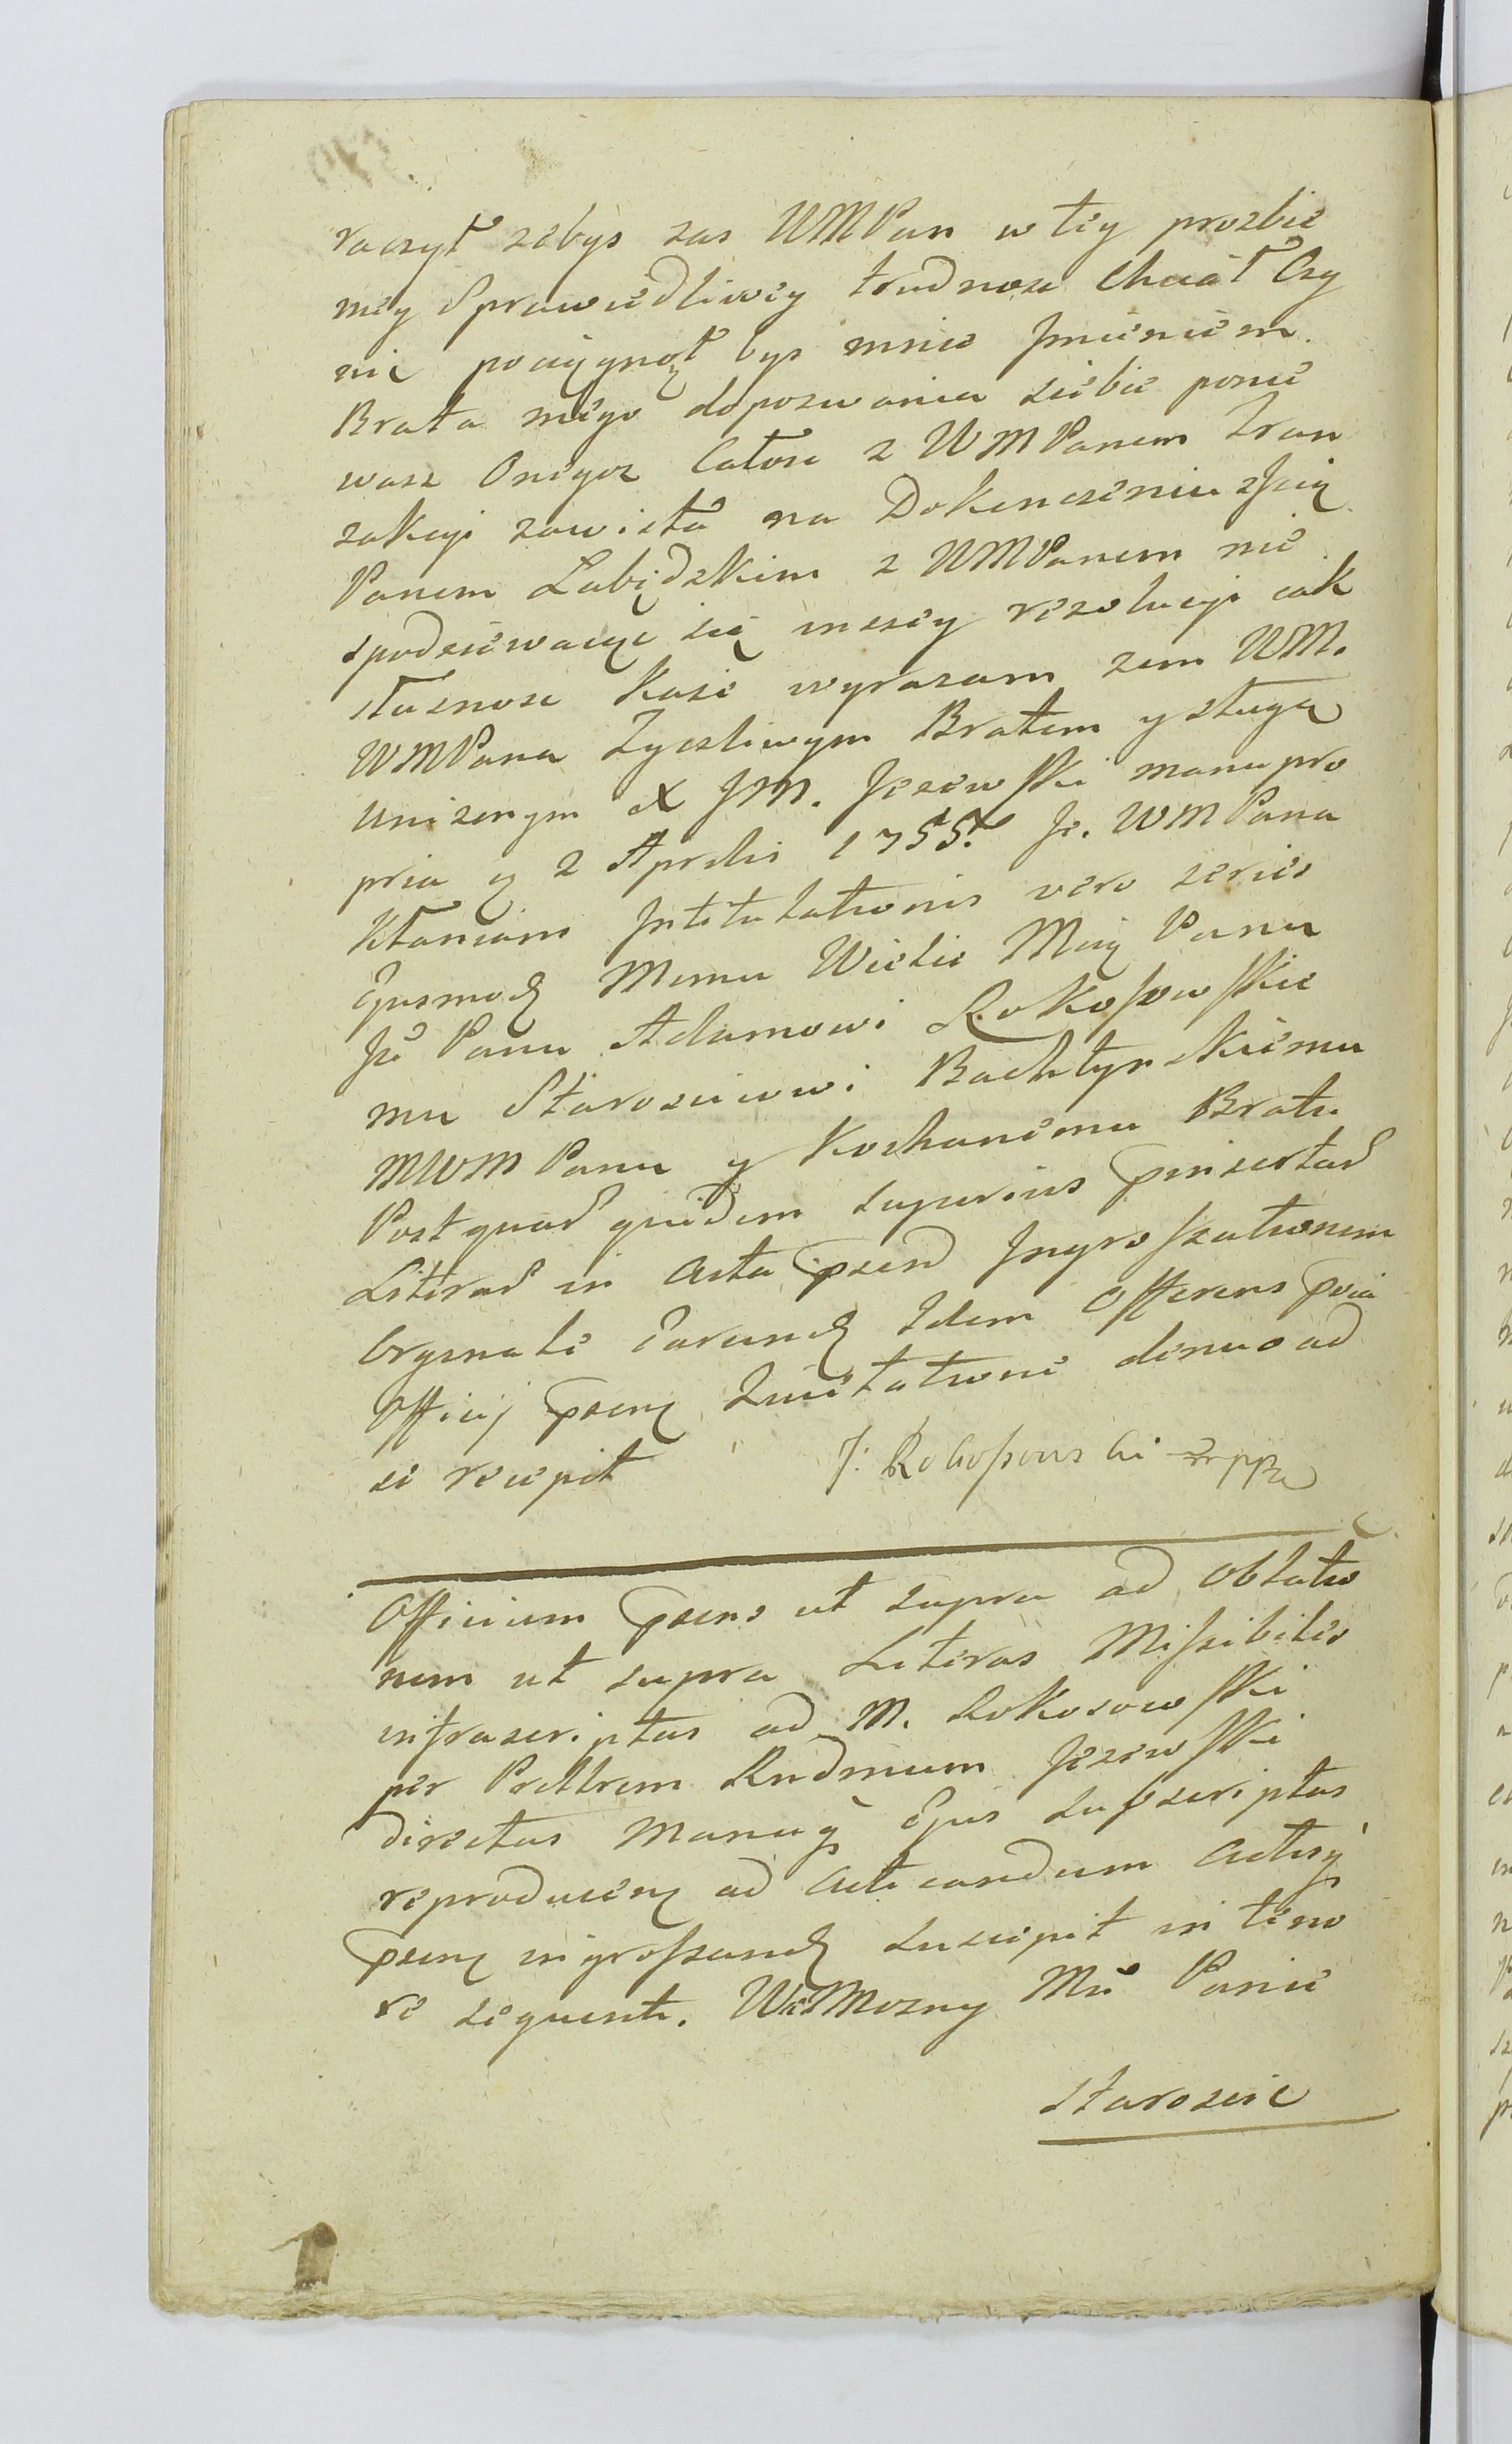 raczył zebys zas WMPan w tey prozbie
mey Sprawiedliwey trudnosc Chciał Czy
nic pociągnął bys mnie Jmieniem
Brata mego dopozwania siebie ponie
wasz Onegoz Całosc z WMPanem Tran
zakcyi zawisła na Dokonczeniu zJcią
Panem Łabędzkim z WMPanem nie
spodziewaiąc się inszey rezolucyi iak
słusznosc Kaze wyrazam zem WM.
WMPana Zyczliwym Bratem y sługą
Unizonym X JM. Jezewski manu pro
pria q 2 Aprilis 1755. Je. WMPana
Kłaniam Jntitulationis vero series
Ejusmodj Memu Wielce Mcią Panu
Je Panu Adamowi Rokossowskie
mu Starosciowi Bachtynskiemu
MWMPanu y Kochanemu Bratu
Post quar quidem superius pinsertar
Literar in Acta psend Jngrossationem
Orygnale Earundj Jdem Offerens pcia
Officij psenq Quietatione denuo ad
se recepit J: Rokossowski mppa
Officium psens ut supra ad Oblatio
nem ut supra Literas Missibiles
infrascriptas ad M. Rokosowski
per Prettrem Rndmum Jezewski
directas Manuq Ejus subscriptas
reproducenq ad Acticandum Actisq
psenq ingrossandj suscepit in teno
re sequenti. WieMozny Mci Panie
Staroscie